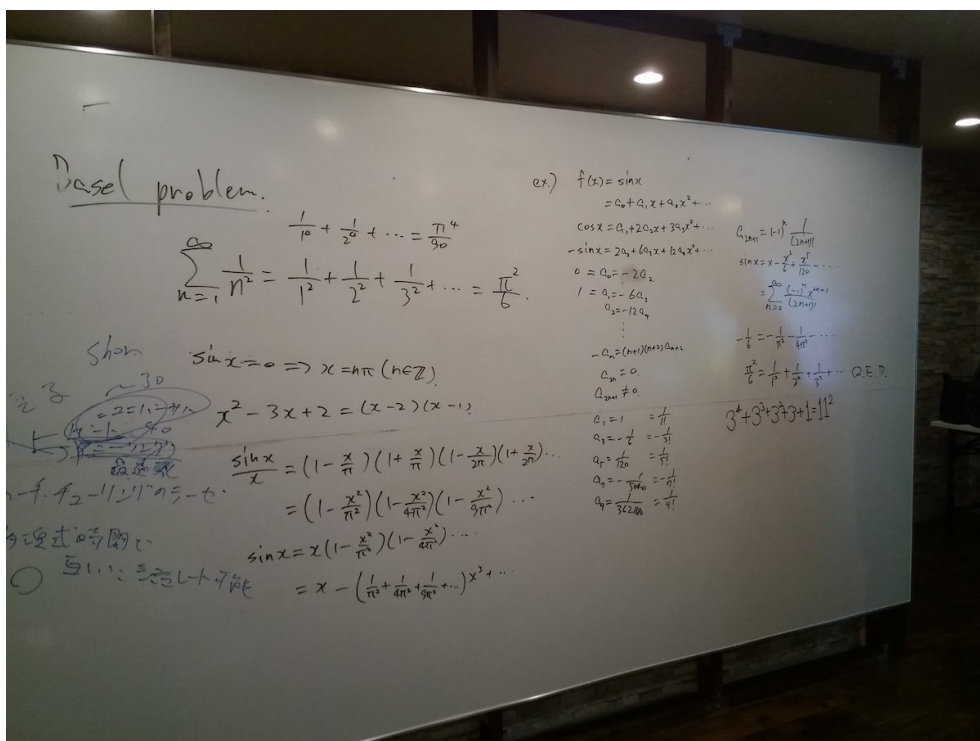 Basel problem.
1/1⁴ + 1/2⁴ + ... = π⁴/90
∞∑n=1 1/n² = 1/1² + 1/2² + 1/3² + ... = π²/6
sin x = 0 => x = nπ (n∈ℤ)
x² - 3x + 2 = (x-2)(x-1)
sin x/x = (1 - x/π)(1 + x/π)(1 - x/2π)(1 + x/2π)...
= (1 - x²/π²)(1 - x²/4π²)(1 - x²/9π²)...
sin x = x(1 - x²/π²)(1 - x²/4π²)...
= x - (1/π² + 1/4π² + 1/9π² + ...)x³ + ...
~30
ex.) f(x) = sin x
= a₀ + a₁x + a₂x² + ...
cos x = a₁ + 2a₂x + 3a₃x² + ...
-sin x = 2a₂ + 6a₃x + 12a₄x² + ...
0 = a₀ = -2a₂
1 = a₁ = -6a₃
a₂ = -12a₄
⋮
-aₙ = (n+1)(n+2)aₙ₊₂
a₂ₙ = 0.
a₂ₙ₊₁ ≠ 0.
a₁ = 1 = 1/1!
a₃ = -1/6 = -1/3!
a₅ = 1/120 = 1/5!
a₇ = -1/5040 = -1/7!
= 1/9!
a₂ₙ₊₁ = (-1)ⁿ 1/(2n+1)!
sin x = x - x³/6 + x⁵/120 - ...
= ∞∑n=0 (-1)ⁿ x²ⁿ⁺¹/(2n+1)!
-1/6 = -1/π² - 1/4π² - ...
π²/6 = 1/1² + 1/2² + 1/3² + ... Q.E.D.
3⁴+3³+3²+3+1=11²